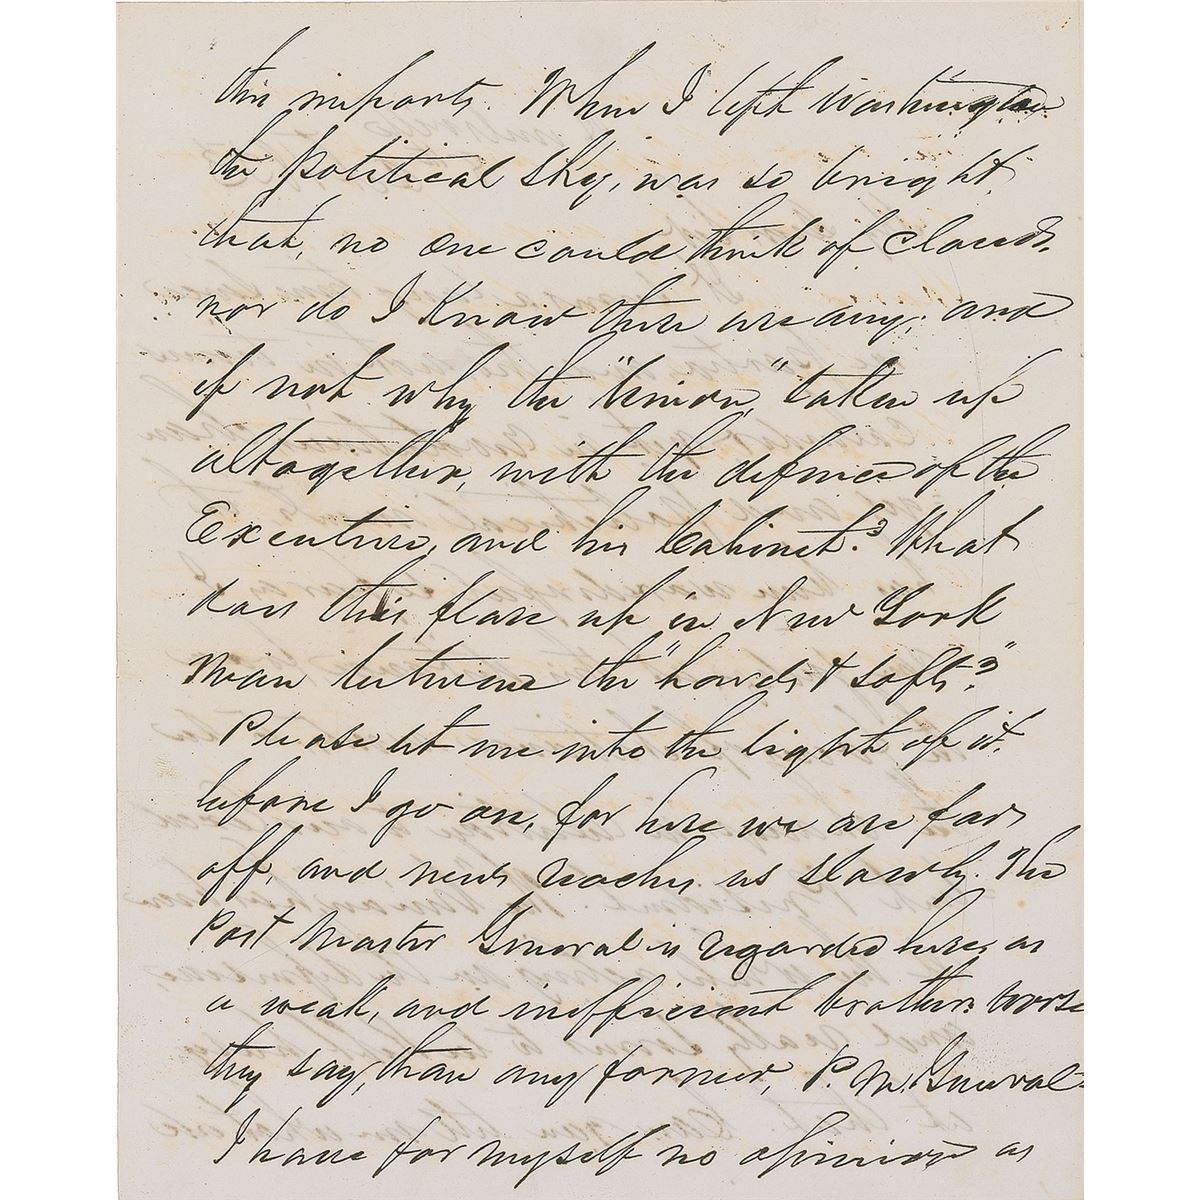 this imports. When I left Washington
the political sky, was so bright,
that, no one could think of clouds,
nor do I know there are any; and
if not why the "Union," taken up
altogether, with the defence of the
Executive, and his Cabinet? What
does this flare up in New York
mean between the "hards & softs?"
Please let me into the light of it.
before I go on, for here we are far
off, and news reaches us slowly. The
Post Master General is regarded here, as
a weak, and inefficient brother: worse
they say, than any former, P. M. General:
I have for myself no opinion as